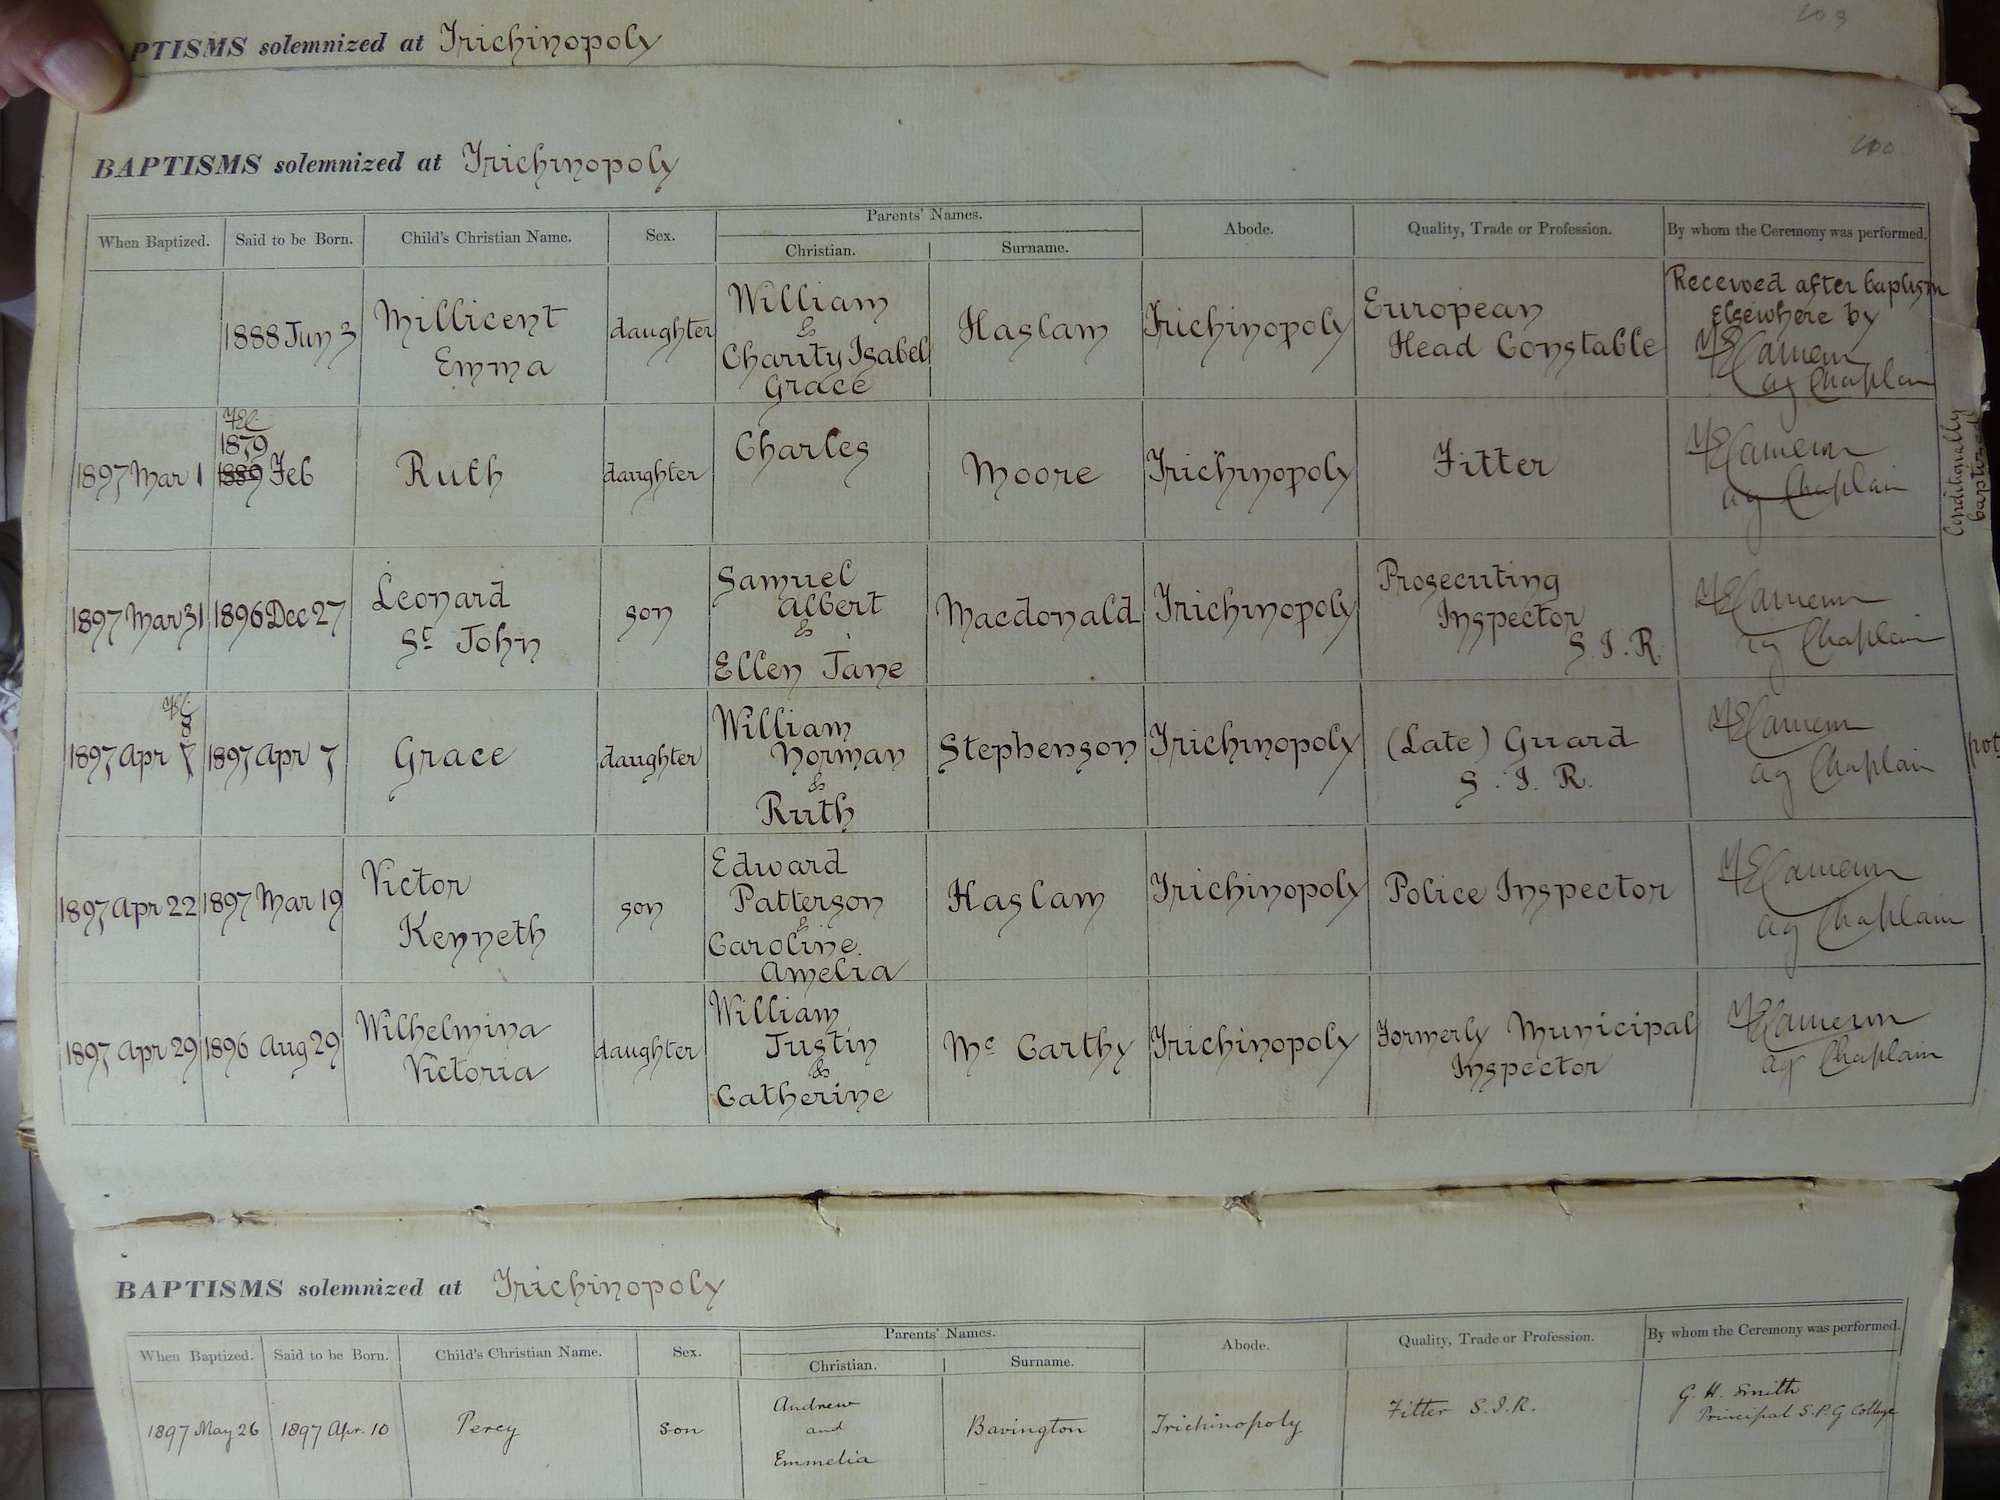 BAPTISMS solemnized at Trichinopoly
BAPTISMS solemnized at Trichinopoly
100
When Baptized. Said to be Born. Child's Christian Name. Sex. Parents' Names. Christian. Surname. Abode. Quality, Trade or Profession. By whom the Ceremony was performed.
1888 Jun 3
Millicent
Emma
daughter
William
&
Charity Isabel
Grace
Haslam
Trichinopoly
European
Head Constable
Received after baptism
Elsewhere by
Cameron
ag Chaplain
1897 Mar 1
1879
1889 Feb
Ruth
daughter
Charles
Moore
Trichinopoly
Fitter
Cameron
ag Chaplain
Conditionally
baptized
1897 Mar 31
1896 Dec 27
Leonard
St John
son
Samuel
Albert
&
Ellen Jane
Macdonald
Trichinopoly
Prosecuting
Inspector
S. I. R.
Cameron
ag Chaplain
8
1897 Apr 7
1897 Apr 7
Grace
daughter
William
Norman
&
Ruth
Stephenson
Trichinopoly
(Late) Guard
S. I. R.
Cameron
ag Chaplain
1897 Apr 22
1897 Mar 19
Victor
Kenneth
son
Edward
Patterson
&
Caroline
Amelia
Haslam
Trichinopoly
Police Inspector
Cameron
ag Chaplain
1897 Apr 29
1896 Aug 29
Wilhelmina
Victoria
daughter
William
Justin
&
Catherine
Mc Carthy
Trichinopoly
Formerly Municipal
Inspector
Cameron
ag Chaplain
BAPTISMS solemnized at Trichinopoly
When Baptized. Said to be Born. Child's Christian Name. Sex. Parents' Names. Christian. Surname. Abode. Quality, Trade or Profession. By whom the Ceremony was performed.
1897 May 26
1897 Apr. 10
Percy
son
Andrew
and
Emmelia
Bavington
Trichinopoly
Fitter S.I.R.
G. H. Smith
Principal S.P.G. College